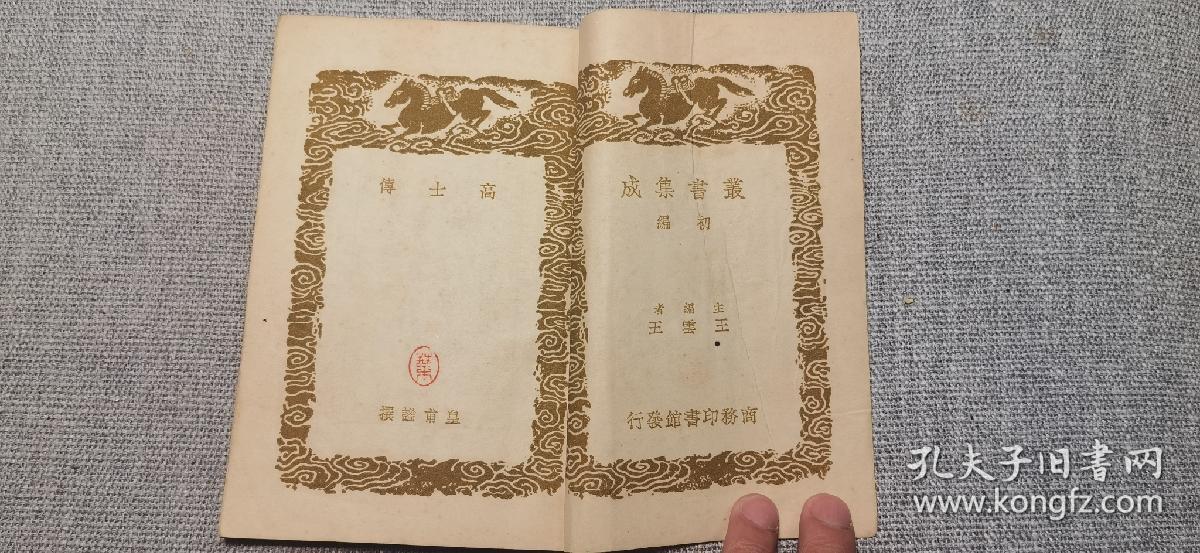 叢書集成
初編
主編者
王雲五
商務印書館發行
高士傳
皇甫謐撰
孔夫子旧書网
www.kongfz.com